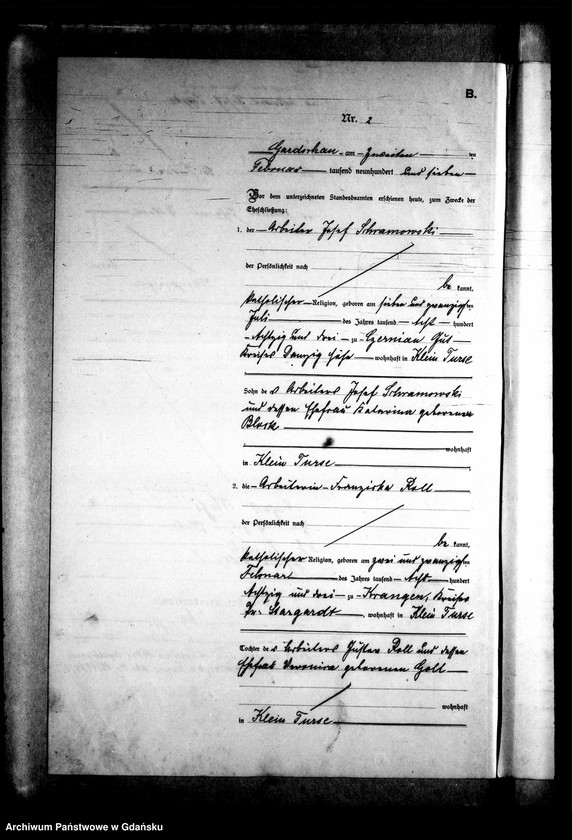 B.
Nr. 2
Gardschau am Zweiten ten
Februar tausend neunhundert und sieben
Vor dem unterzeichneten Standesbeamten erschienen heute, zum Zwecke der
Eheschließung:
1. der Arbeiter Josef Schramowski
der Persönlichkeit nach
be kannt,
katholischer Religion, geboren am sieben und zwanzigsten
Juli des Jahres tausend Acht hundert
Achtzig und drei zu Czernian Gut
Kreises Danzig Höhe wohnhaft in Klein Turse
Sohn des Arbeiters Josef Schramowski
und dessen Ehefrau Katarina geborenen
Block
wohnhaft
in Klein Turse
2. die Arbeiterin Franziska Roll
der Persönlichkeit nach
be kannt,
katholischer Religion, geboren am zwei und zwanzigsten
Februar des Jahres tausend Acht hundert
Achtzig und drei zu Krangen, Kreises
Pr. Stargardt, wohnhaft in Klein Turse
Tochter des Arbeiters Gustav Roll und dessen
Ehefrau Veronica geborenen Goll
wohnhaft
in Klein Turse
Archiwum Państwowe w Gdańsku